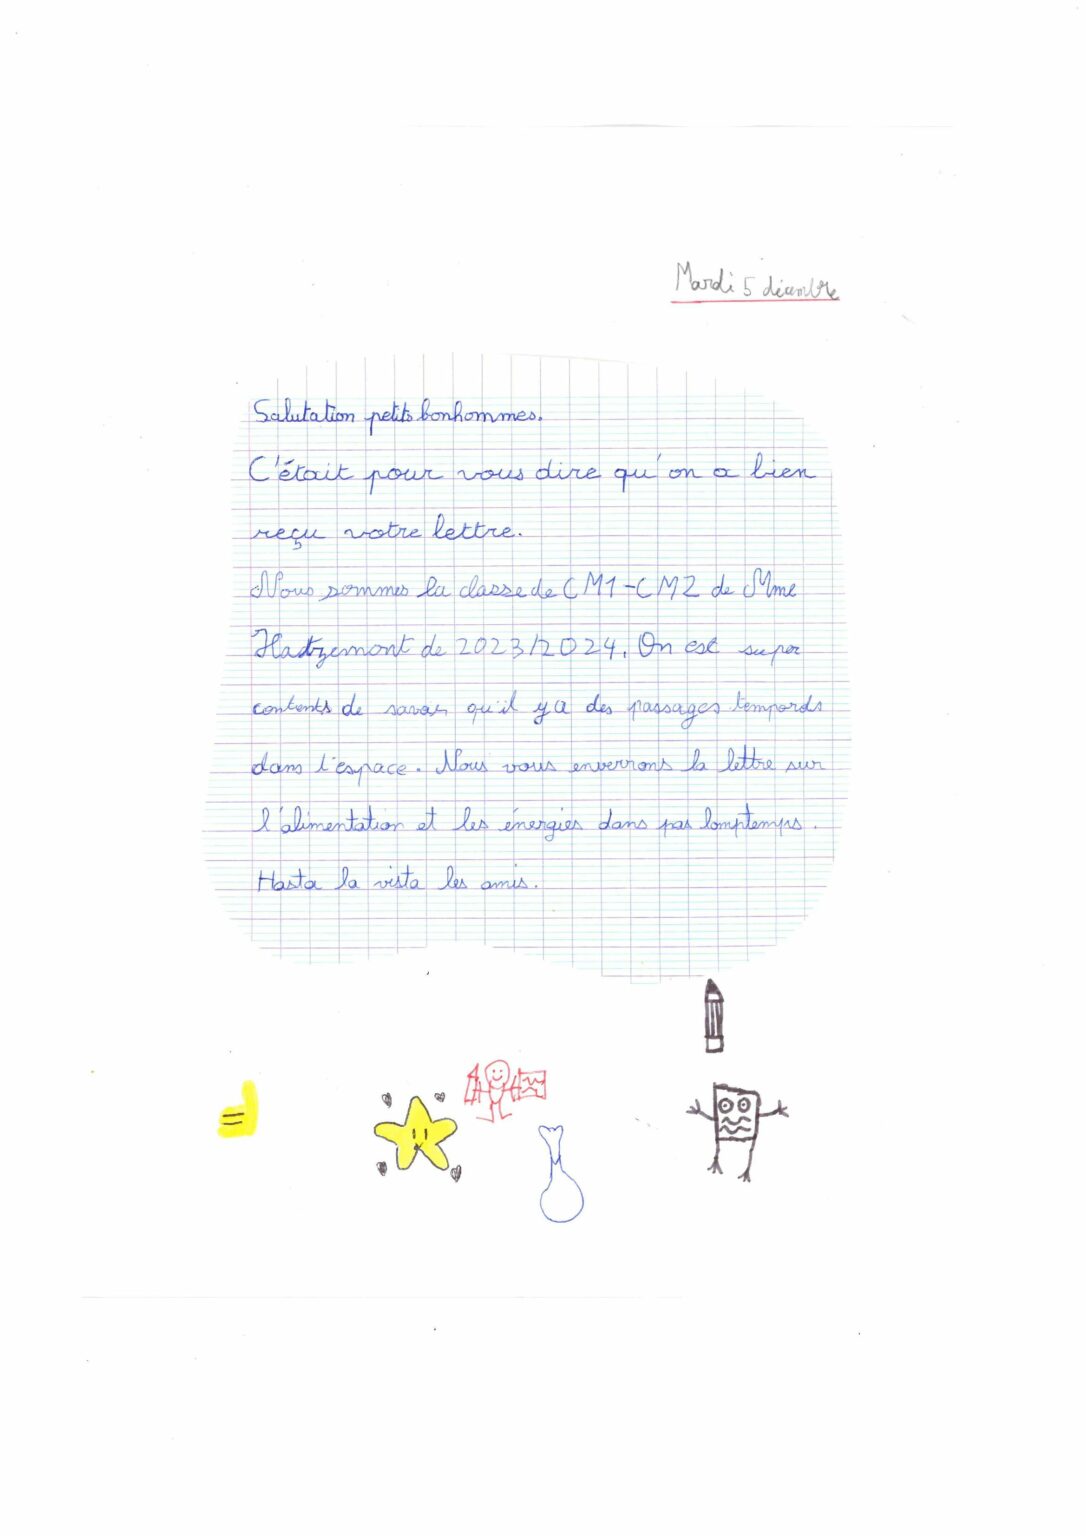 Mardi 5 décembre
Salutation petits bonhommes.
C'était pour vous dire qu'on a bien
reçu votre lettre.
Nous sommes la classe de CM1-CM2 de Mme
de 2023/2024. On est super
contents de savoir qu'il y a des passages tempords
dans l'espace. Nous vous enverrons la lettre sur
l'alimentation et les énergies dans pas lomptemps.
Hasta la vista les amis.